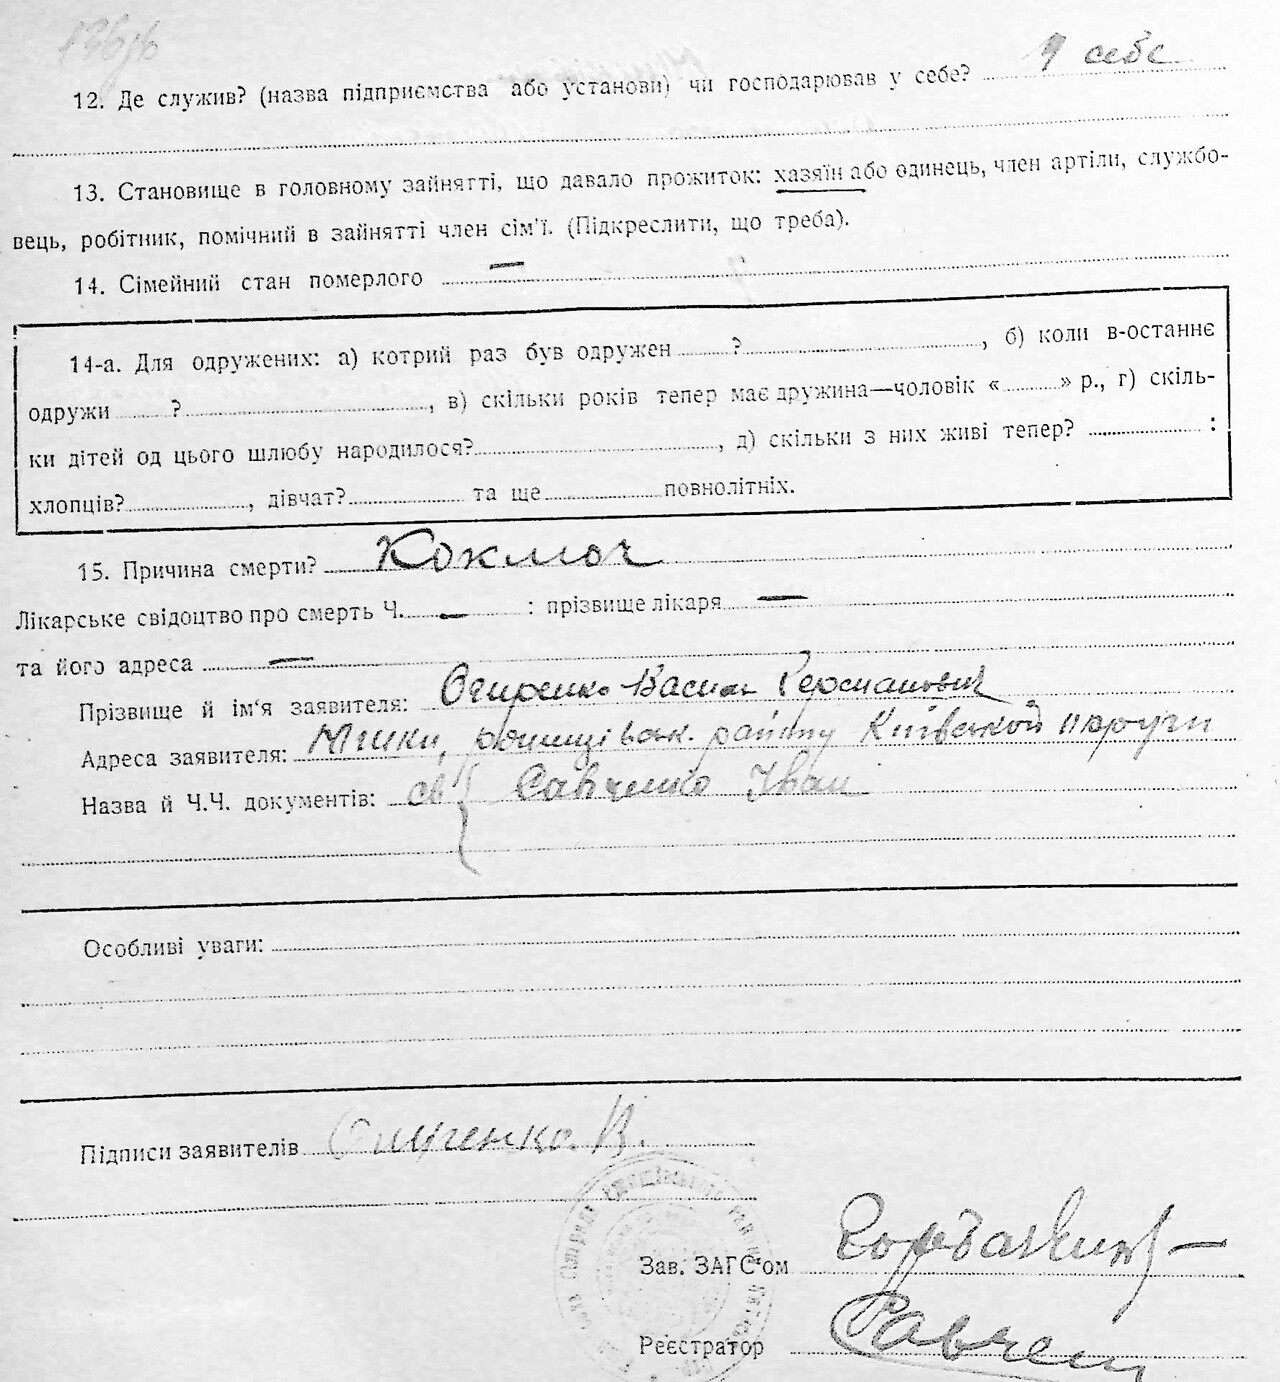 12. Де служив? (назва підприємства або установи) чи господарював у себе? У себе
13. Становище в головному зайнятті, що давало прожиток: хазяїн або одинець, член артіли, службо-
вець, робітник, помічний в зайнятті член сім'ї. (Підкреслити, що треба).
14. Сімейний стан померлого —
14-а. Для одружених: а) котрий раз був одружен ? , б) коли в-останнє
одружи ? , в) скільки років тепер має дружина—чоловік « » р., г) скіль-
ки дітей од цього шлюбу народилося? , д) скільки з них живі тепер? :
хлопців? , дівчат? та ще повнолітніх.
15. Причина смерти? Коключ
Лікарське свідоцтво про смерть Ч. — : прізвище лікаря —
та його адреса —
Прізвище й ім'я заявителя: Василь
Адреса заявителя: району Київської округи
Назва й Ч.Ч. документів: св Савченко Іван
Особливі уваги:
Підписи заявителів В.
Зав. ЗАГС'ом
Реєстратор